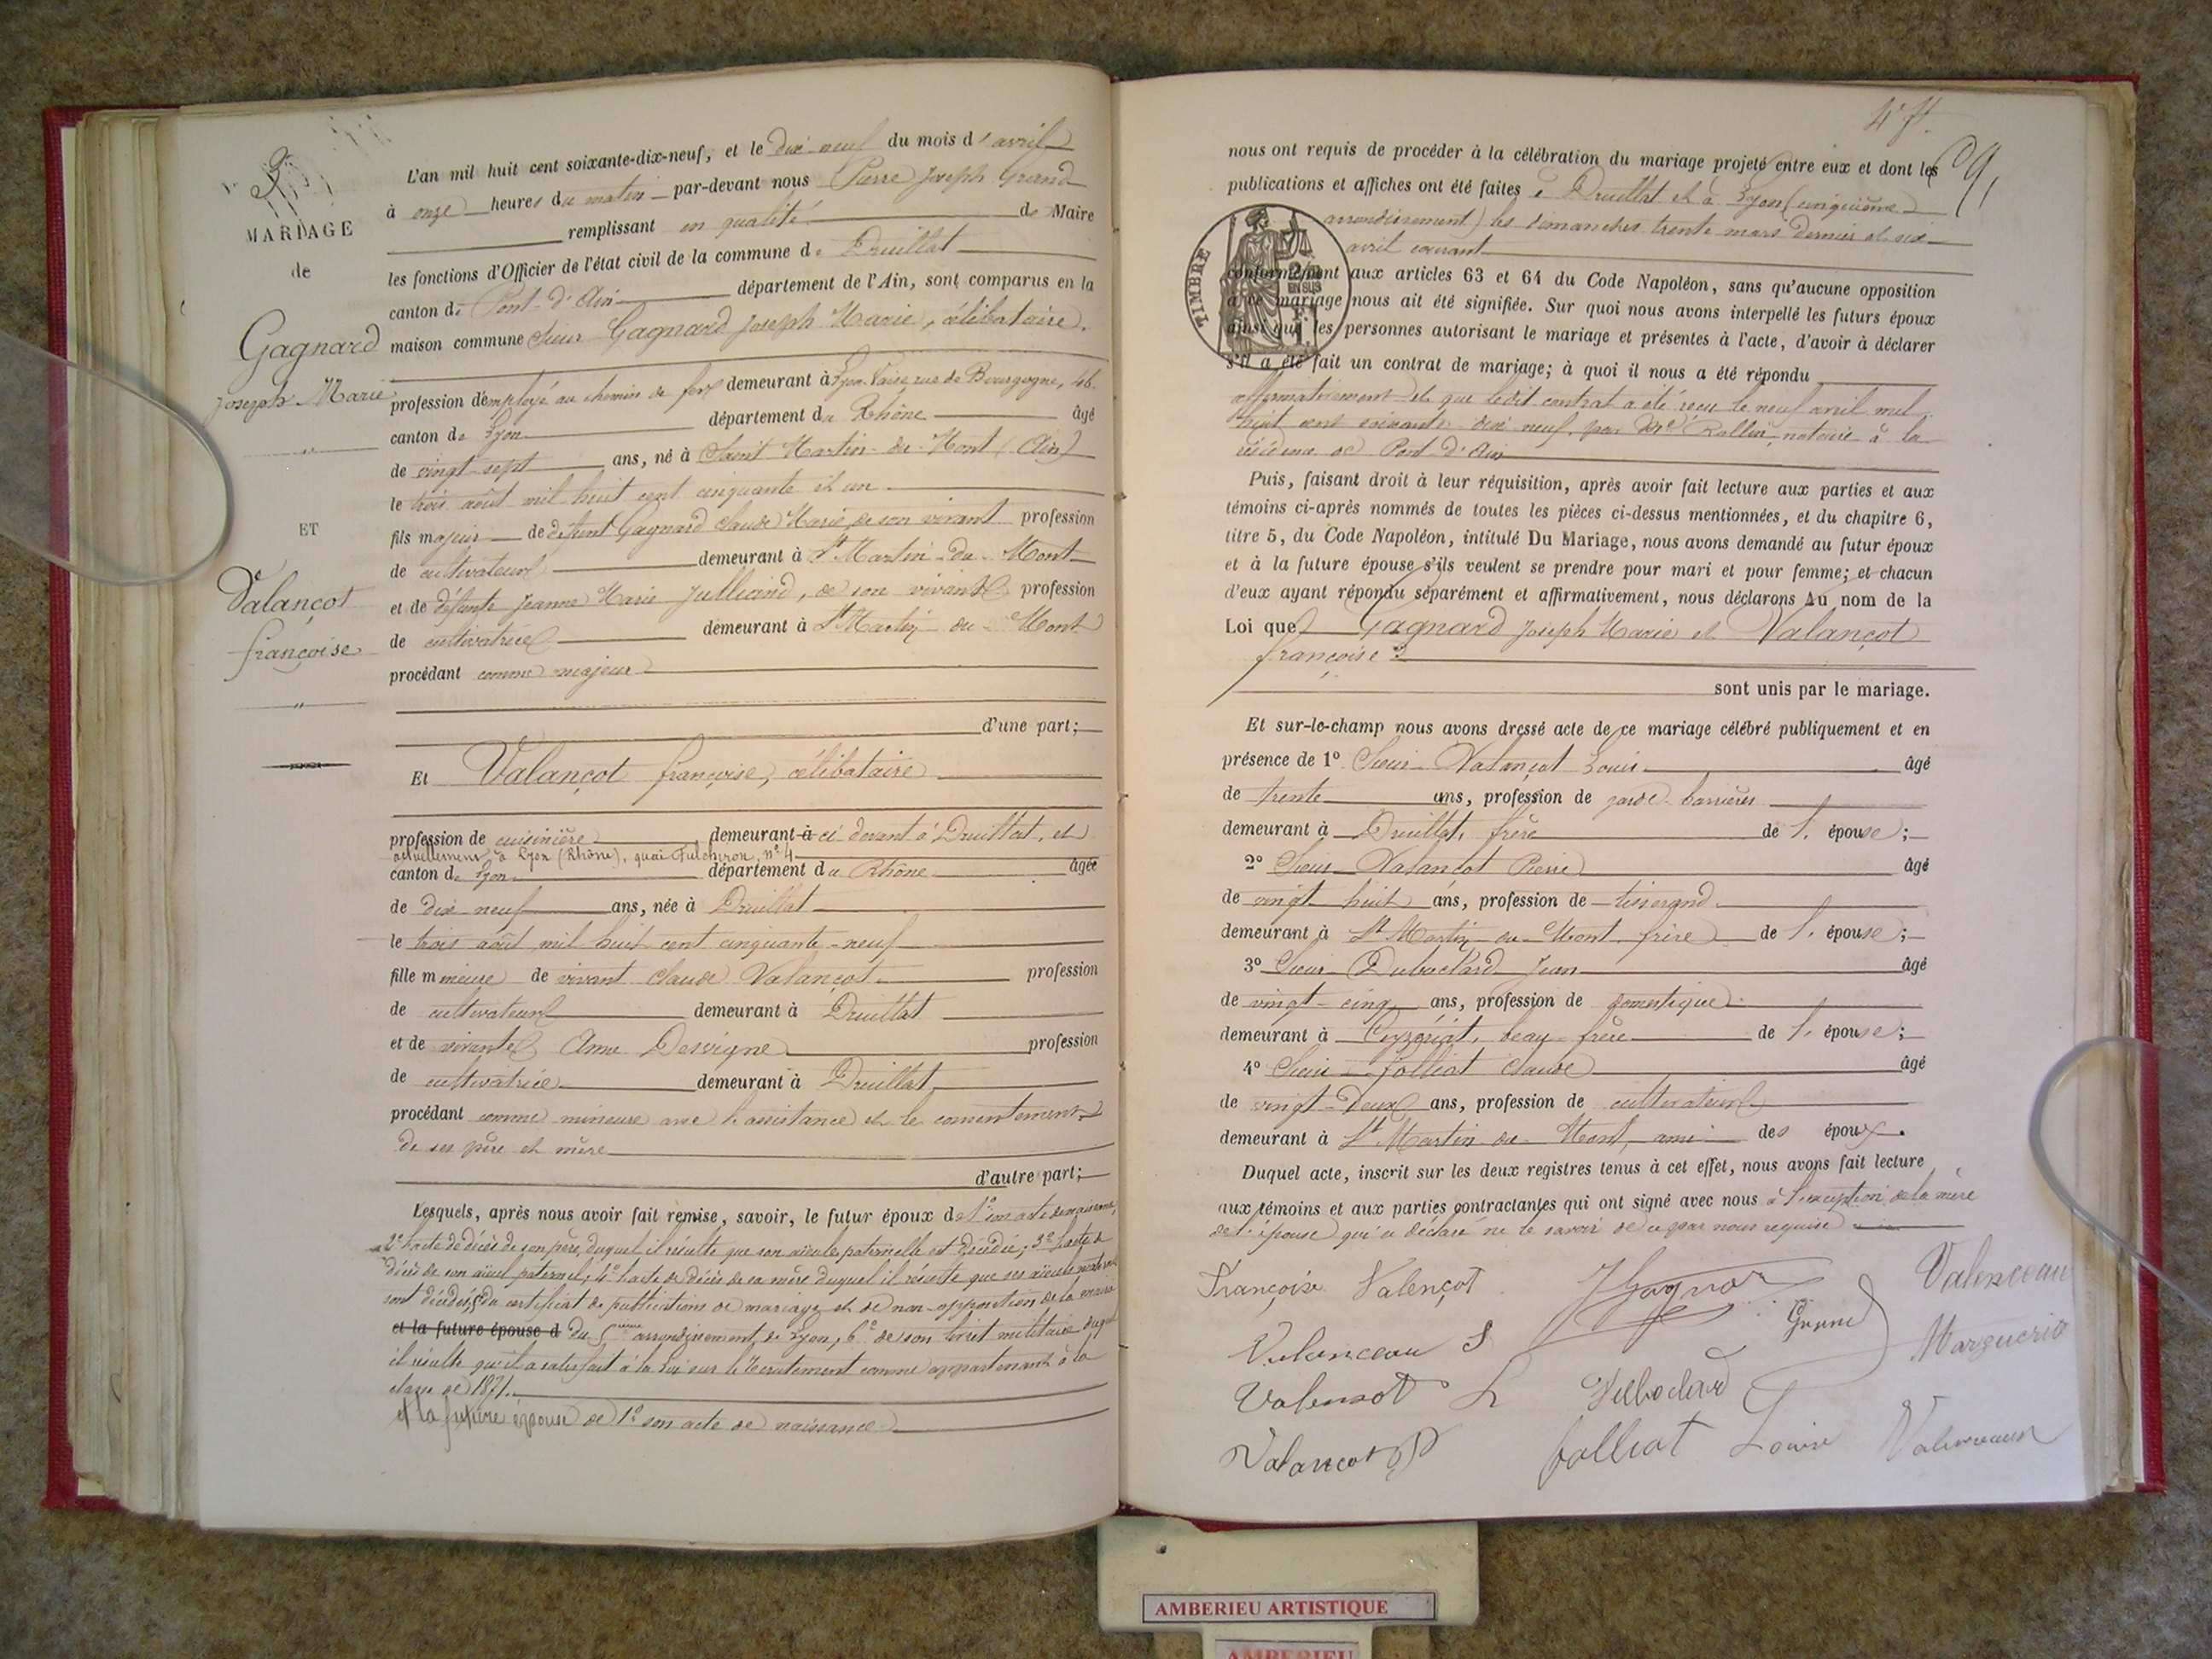 MARIAGE
de
Gagnard
Joseph Marie
ET
Valançot
françoise
L'an mil huit cent soixante-dix-neuf, et le dix-neuf du mois d'avril
à onze heures du matin par-devant nous Pierre Joseph Grand
remplissant en qualité de Maire
les fonctions d'Officier de l'état civil de la commune de Druillat
canton de Pont-d'Ain département de l'Ain, sont comparus en la
maison commune Sieur Gagnard Joseph Marie, célibataire.
profession d'employé au chemin de fer demeurant à Lyon-Vaise, rue de Bourgogne, 46
canton de Lyon département du Rhône âgé
de vingt-sept ans, né à Saint Martin-du-Mont (Ain)
le trois août mil huit cent cinquante et un
fils majeur de défunt Gagnard Claude Marie, de son vivant profession
de cultivateur demeurant à St Martin-du-Mont
et de défunte Jeanne Marie Julliand, de son vivant profession
de cultivatrice demeurant à St Martin du Mont
procédant comme majeur
d'une part;
Et Valançot françoise, célibataire
profession de cuisinière demeurant à ci-devant à Druillat, et
actuellement à Lyon (Rhône), quai Fulchiron, n° 4
canton de Lyon département du Rhône âgée
de dix-neuf ans, née à Druillat
le trois août mil huit cent cinquante-neuf
fille mineure de vivant Claude Valançot profession
de cultivateur demeurant à Druillat
et de vivante Anne Dervigne profession
de cultivatrice demeurant à Druillat
procédant comme mineure avec l'assistance et le consentement
de ses père et mère
d'autre part;
Lesquels, après nous avoir fait remise, savoir, le futur époux de 1° son acte de naissance,
2° l'acte de décès de son père, duquel il résulte que son aïeule paternelle est décédée; 3° l'acte de
décès de son aïeul paternel; 4° l'acte de décès de sa mère duquel il résulte que ses aïeuls maternels
sont décédés; 5° du certificat de publications de mariage et de non-opposition de la mairie
et la future épouse d du 5ième arrondissement de Lyon; 6° de son livret militaire duquel
il résulte qu'il a satisfait à la loi sur le recrutement comme appartenant à la
classe de 1871.
et la future épouse de 1° son acte de naissance
4e ft.
9,
nous ont requis de procéder à la célébration du mariage projeté entre eux et dont les
publications et affiches ont été faites à Druillat et à Lyon (cinquième
arrondissement) les dimanches trente mars dernier et six
avril courant
TIMBRE
conformément aux articles 63 et 64 du Code Napoléon, sans qu'aucune opposition
à ce mariage nous ait été signifiée. Sur quoi nous avons interpellé les futurs époux
ainsi que les personnes autorisant le mariage et présentes à l'acte, d'avoir à déclarer
s'il a été fait un contrat de mariage; à quoi il nous a été répondu
affirmativement et que ledit contrat a été reçu le neuf avril mil
huit cent soixante-dix-neuf, par Me Rollin, notaire à la
résidence de Pont-d'Ain
Puis, faisant droit à leur réquisition, après avoir fait lecture aux parties et aux
témoins ci-après nommés de toutes les pièces ci-dessus mentionnées, et du chapitre 6,
titre 5, du Code Napoléon, intitulé Du Mariage, nous avons demandé au futur époux
et à la future épouse s'ils veulent se prendre pour mari et pour femme; et chacun
d'eux ayant répondu séparément et affirmativement, nous déclarons Au nom de la
Loi que Gagnard Joseph Marie et Valançot
françoise
sont unis par le mariage.
Et sur-le-champ nous avons dressé acte de ce mariage célébré publiquement et en
présence de 1° Sieur Valançot Louis âgé
de trente ans, profession de garde-barrières
demeurant à Druillat, frère de l'épouse;
2° Sieur Valançot Pierre âgé
de vingt-huit ans, profession de tisserand
demeurant à St Martin-du-Mont frère de l'épouse;
3° Sieur Duboclard Jean âgé
de vingt-cinq ans, profession de domestique
demeurant à Ceyzériat, beau-frère de l'épouse;
4° Sieur Jolliat Claude âgé
de vingt-deux ans, profession de cultivateur
demeurant à St Martin du Mont, ami des époux.
Duquel acte, inscrit sur les deux registres tenus à cet effet, nous avons fait lecture
aux témoins et aux parties contractantes qui ont signé avec nous à l'exception de la mère
de l'épouse qui a déclaré ne le savoir de ce par nous requise
Françoise Valençot JGagnar Valenceau
Grand Marguerite
Valanceau
Valensot L Duboclard
Valancot P Jolliat Louise Valenceau
AMBERIEU ARTISTIQUE
AMBERIEU